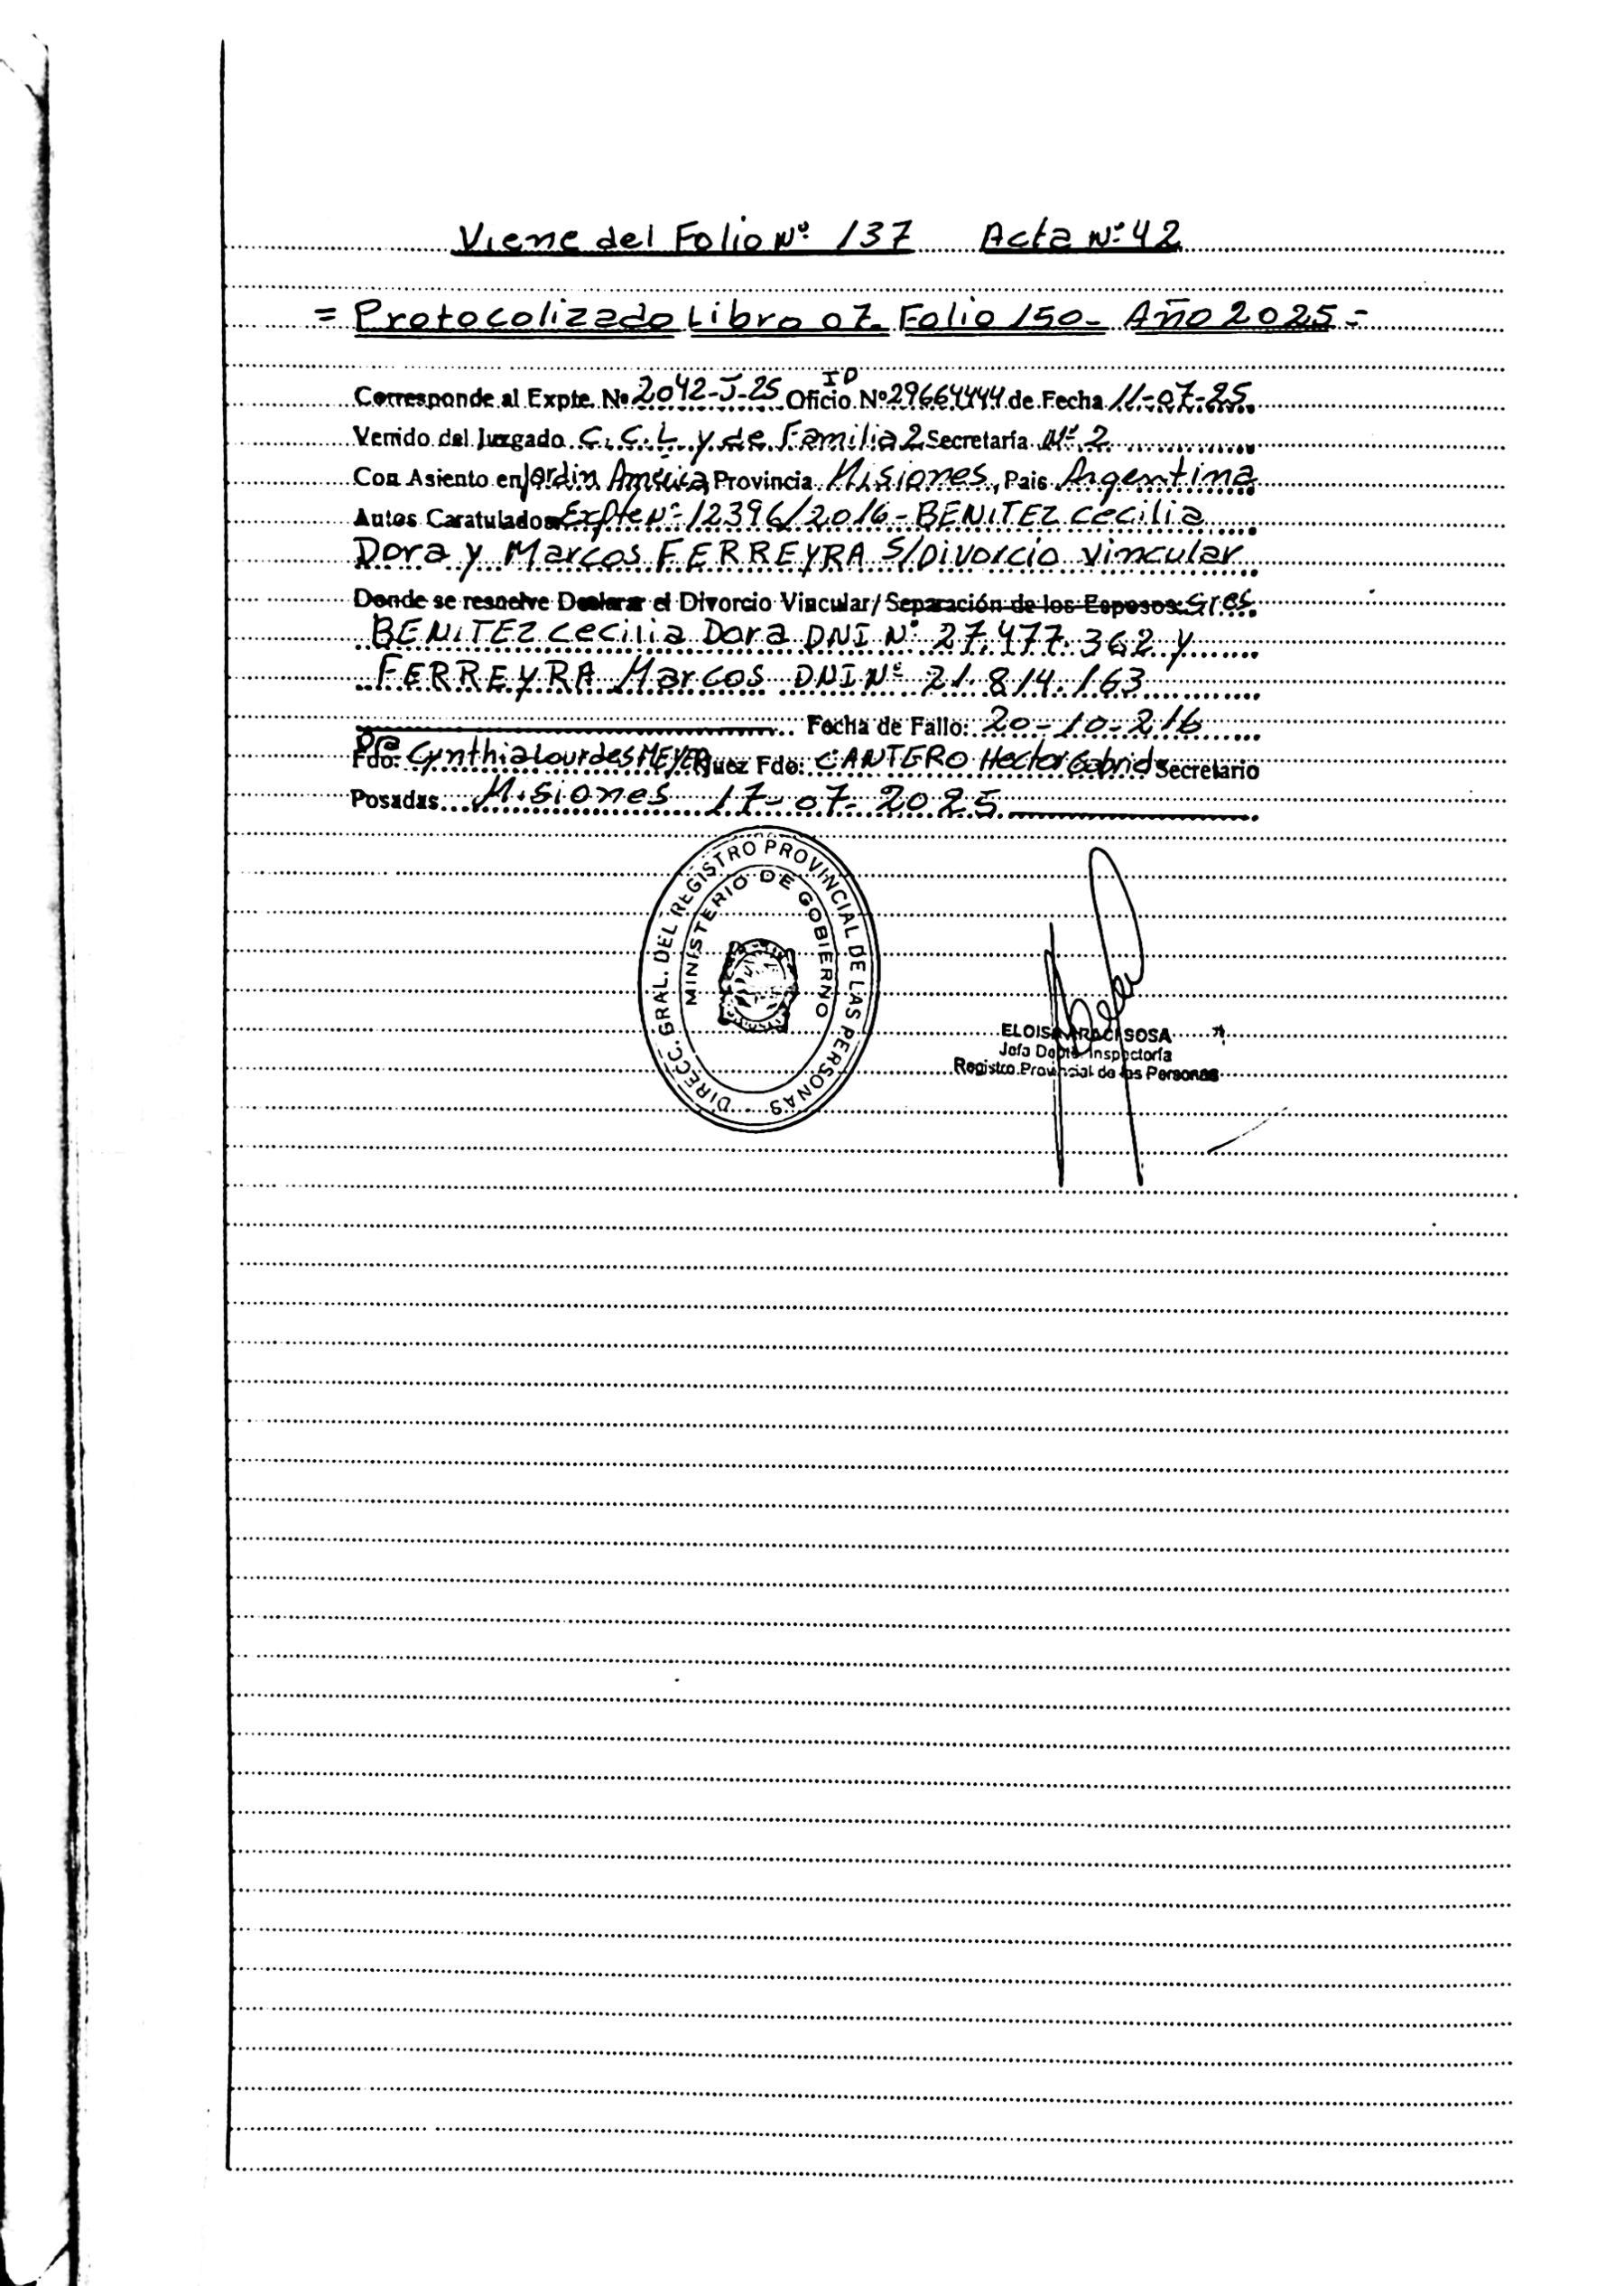 Viene del Folio Nº 137 Acta Nº 42
= Protocolizado Libro 07- Folio 150- Año 2025=
Corresponde al Expte. Nº 2042-J-25 Oficio ID Nº 29664444 de Fecha 11-07-25
Venido del Juzgado C.C.L. y de Familia 2 Secretaría Nº 2
Con Asiento en Jardin América Provincia Misiones, Pais Argentina
Autos Caratulados Expte Nº 12396/2016- BENITEZ Cecilia
Dora y Marcos FERREYRA S/Divorcio Vincular
Donde se resuelve Declarar el Divorcio Vincular/ Separación de los Esposos: Sres.
BENITEZ Cecilia Dora DNI Nº 27.477.362 y
FERREYRA Marcos DNI Nº 21.814.163
Fecha de Fallo: 20-10-216
Fdo: Dra Cynthia Lourdes MEYER Juez Fdo: CANTERO Hector Gabriel Secretario
Posadas Misiones 17-07-2025
DIRECC. GRAL. DEL REGISTRO PROVINCIAL DE LAS PERSONAS
MINISTERIO DE GOBIERNO
ELOISA ARACI SOSA
Jefa Dpto. Inspectoría
Registro Provincial de las Personas